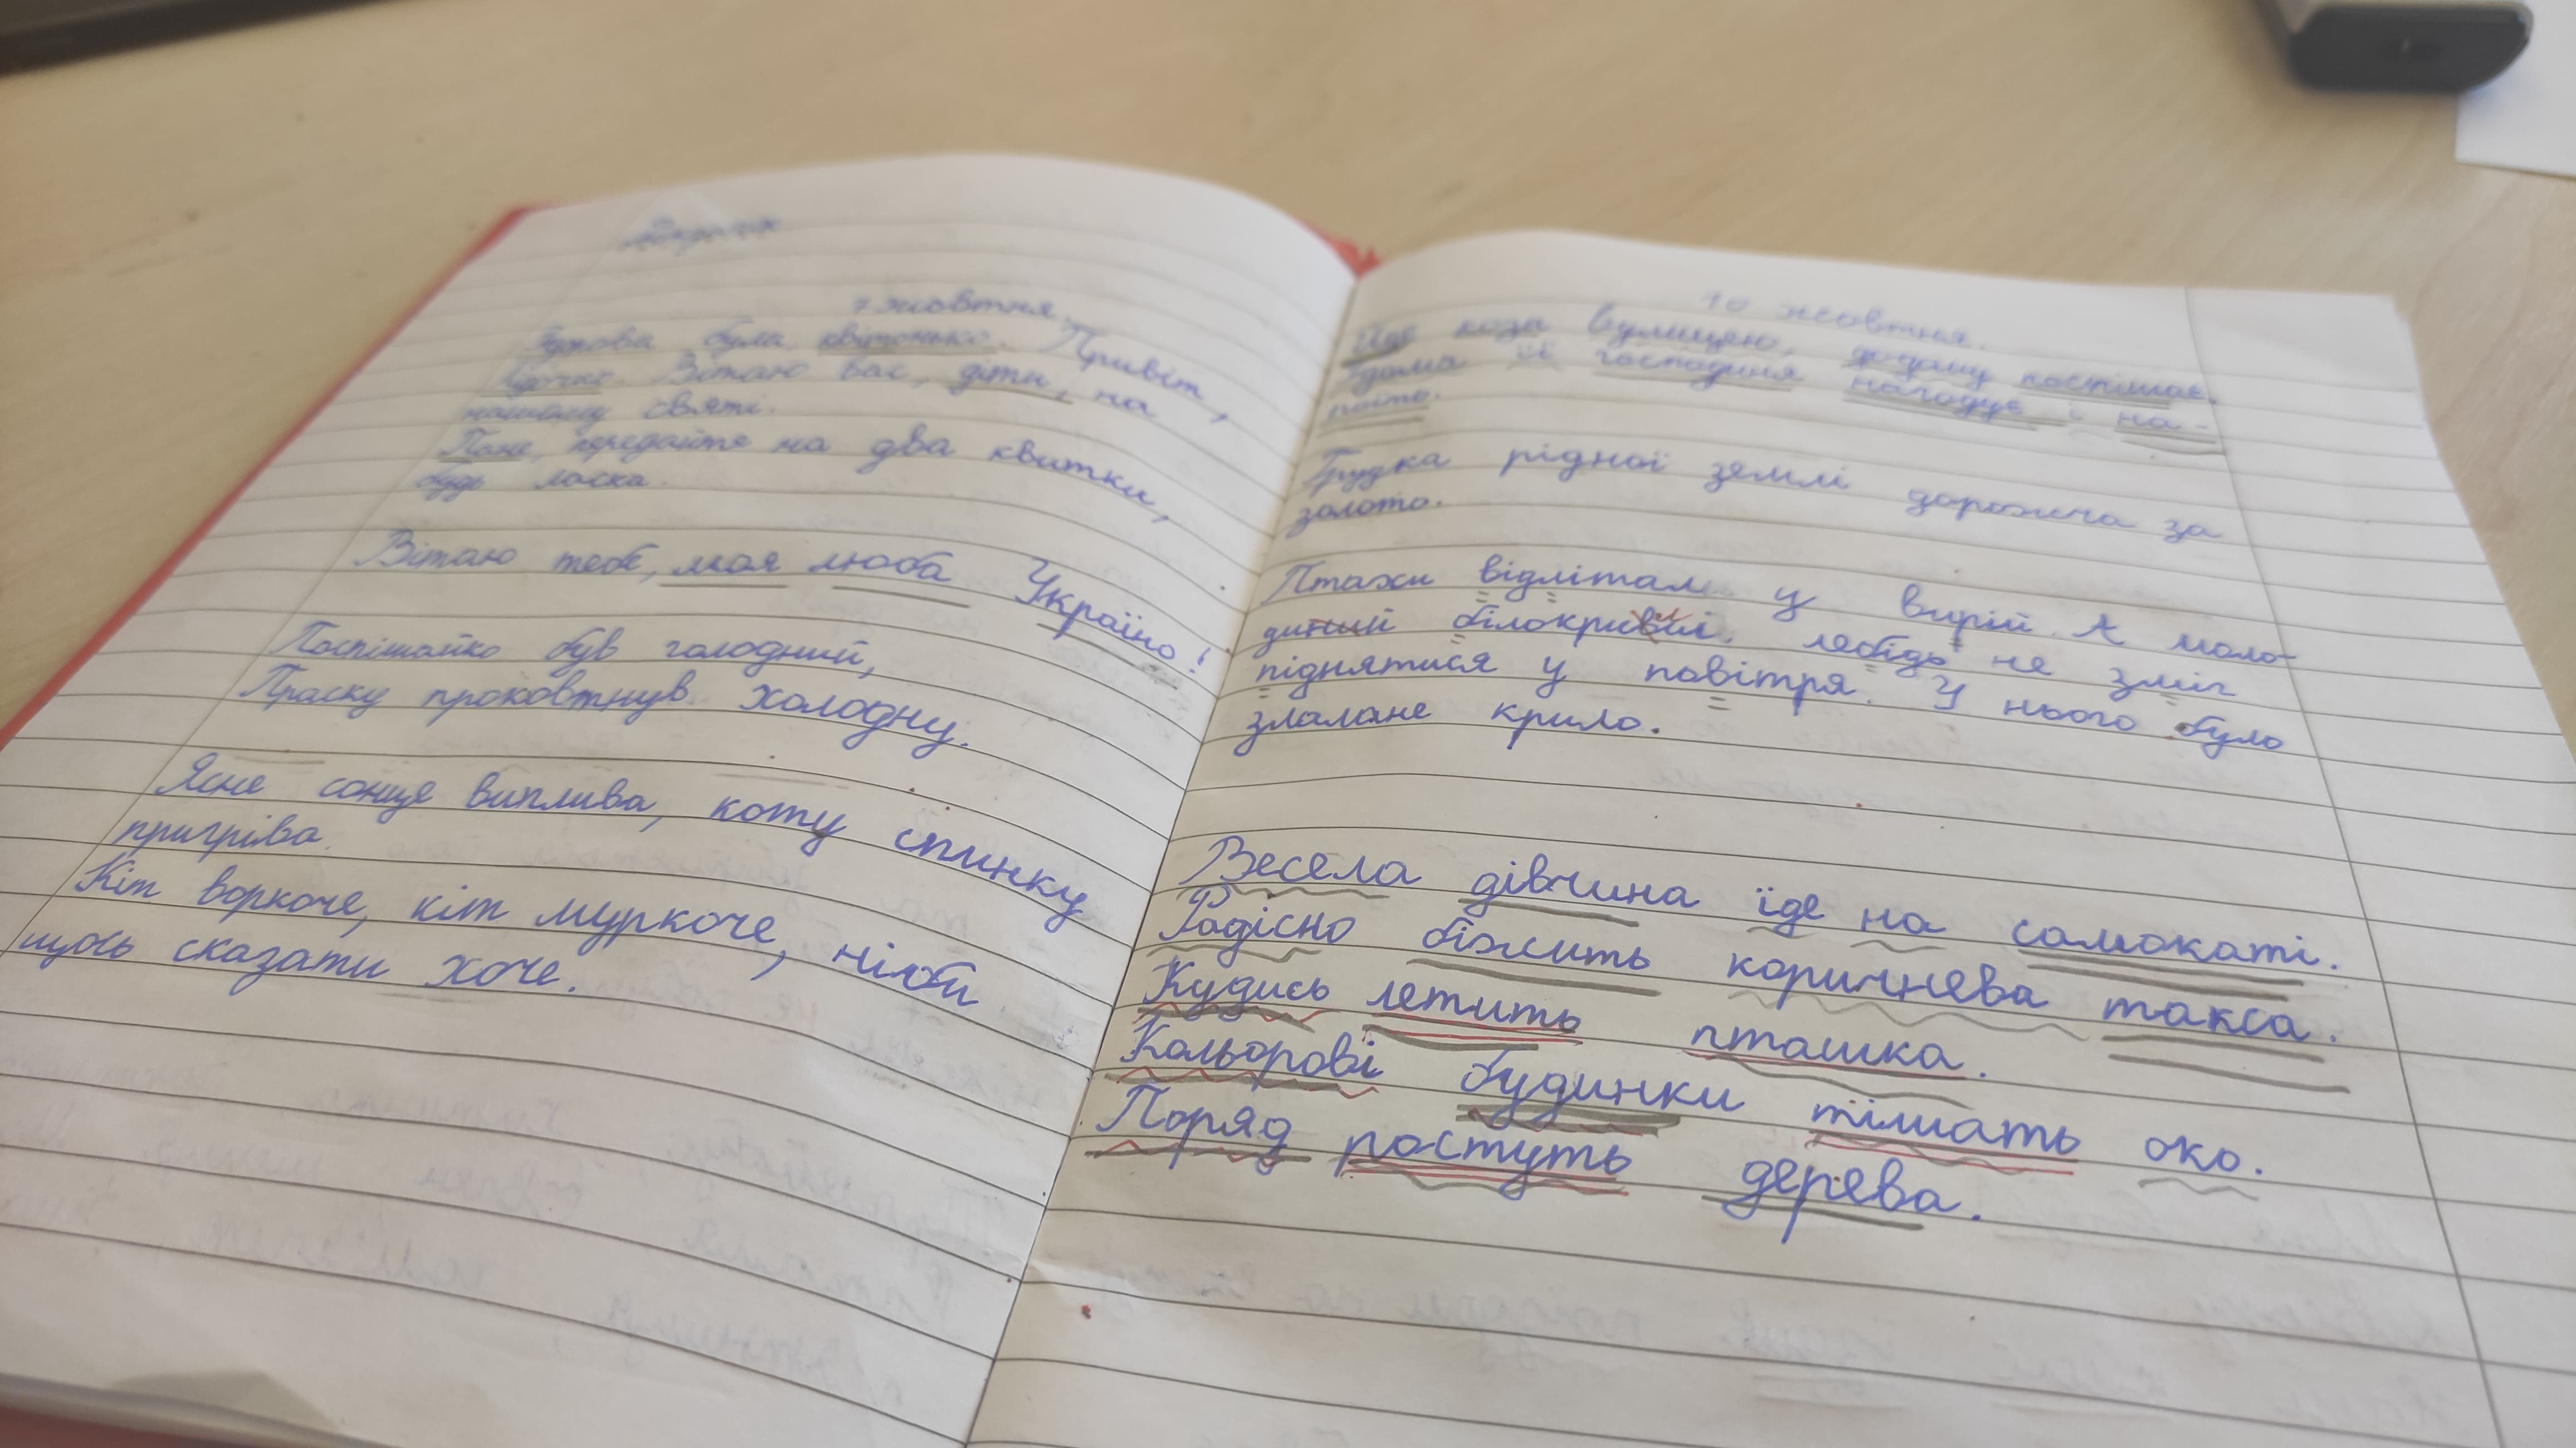 7 жовтня
була квітонько. Привіт,
Вітаю вас, діти, на
нашому святі.
Пане, передайте на два квитки,
будь ласка.
Вітаю тебе, моя люба Україно!
Поспішайко був голодний,
Праску проковтнув холодну.
Ясне сонце виплива, коту спинку
пригріва.
Кіт воркоче, кіт муркоче, ніби
щось сказати хоче.
10 жовтня.
Йде коза вулицею, додому поспішає.
Вдома її господиня нагодує і на-
поїть.
Грудка рідної землі дорожча за
золото.
Птахи відлітали у вирій. А моло-
дий білокрилий лебідь не зміг
піднятися у повітря. У нього було
зламане крило.
Весела дівчина їде на самокаті.
Радісно біжить коричнева такса.
Кудись летить пташка.
Кольорові будинки тішать око.
Поряд ростуть дерева.